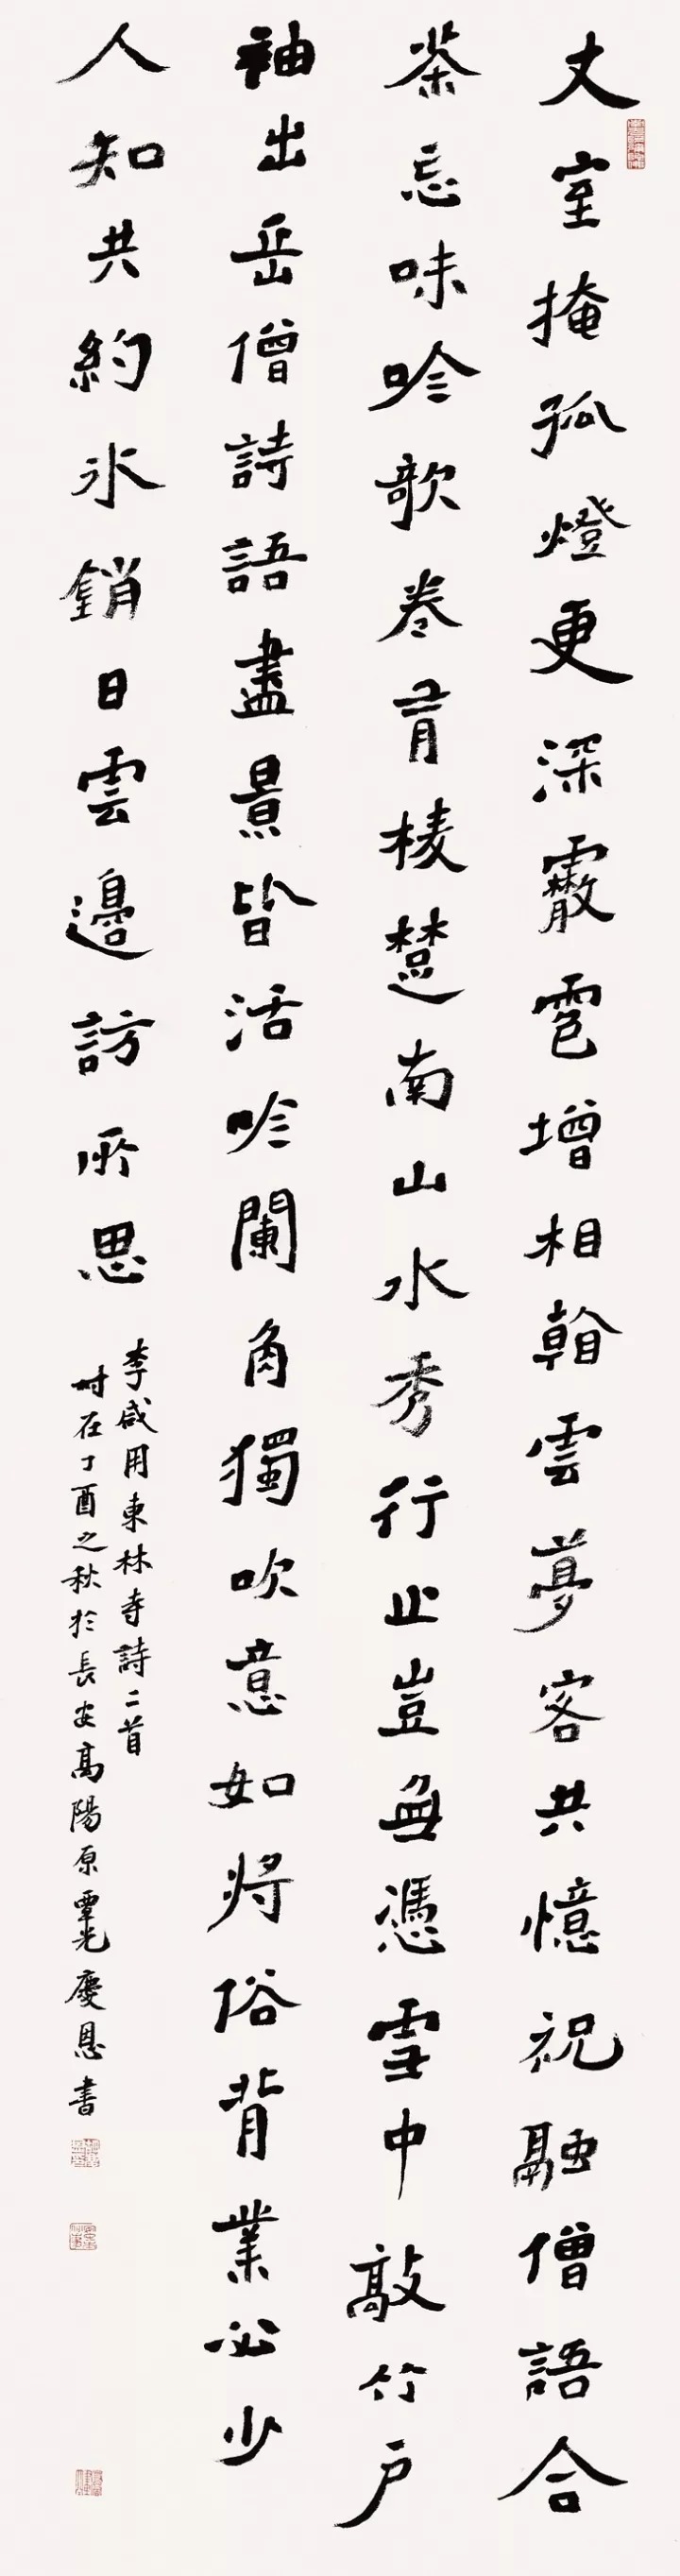 丈室掩孤燈更深霰雹增相看雲夢客共憶祝融僧語合
茶忘味吟欹卷有棱楚南山水秀行止豈無憑雪中敲竹户
袖出岳僧詩語盡景皆活吟闌角獨吹意如將俗背業必少
人知共約冰銷日雲邊訪所思
李咸用東林寺詩二首
时在丁酉之秋於長安高陽原覃光慶恩書